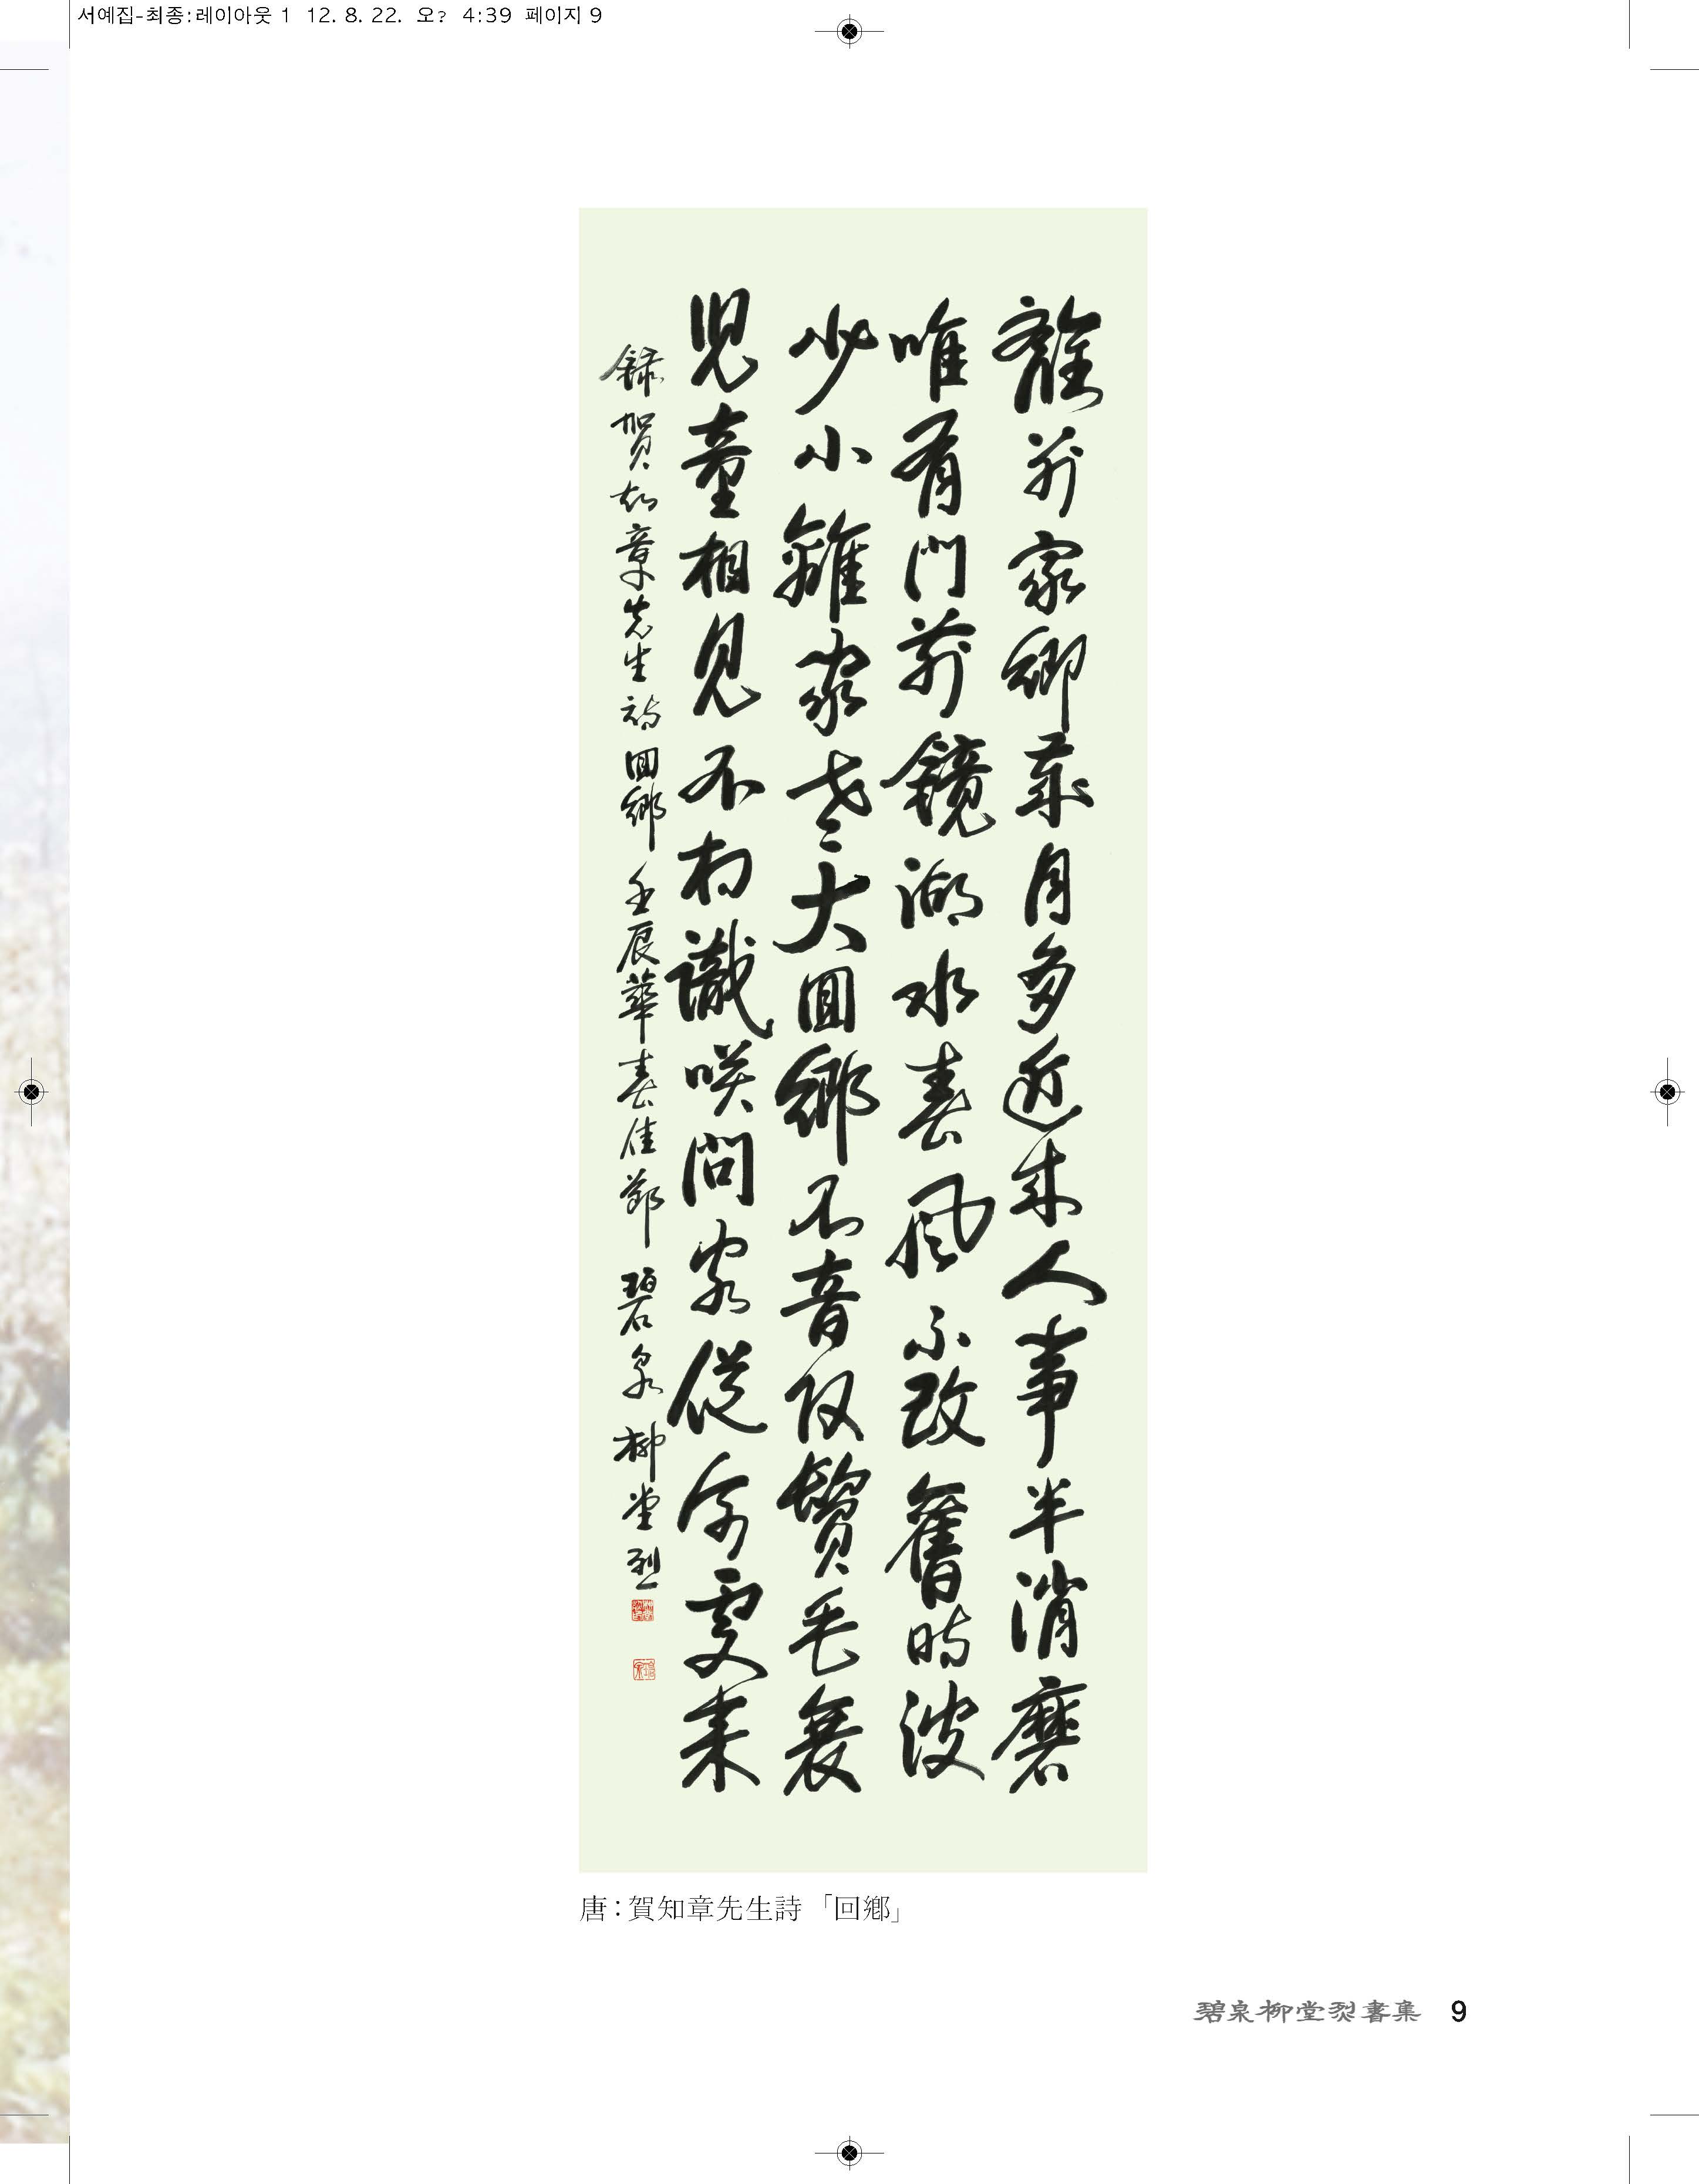 서예집-최종:레이아웃 1 12. 8. 22. 오? 4:39 페이지 9
離別家鄉歲月多近來人事半消磨
唯有門前鏡湖水春風不改舊時波
少小離家老大回鄉不音改鬢毛衰
兒童相見不相識咲問客從何處來
錄賀知章先生詩回鄉 壬辰華春佳節 碧泉 柳堂烈
唐:賀知章先生詩「回鄕」
碧泉柳堂烈書集 9